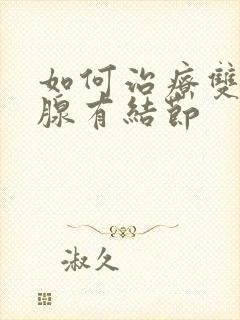 如何治療雙
腺有結節
淑久